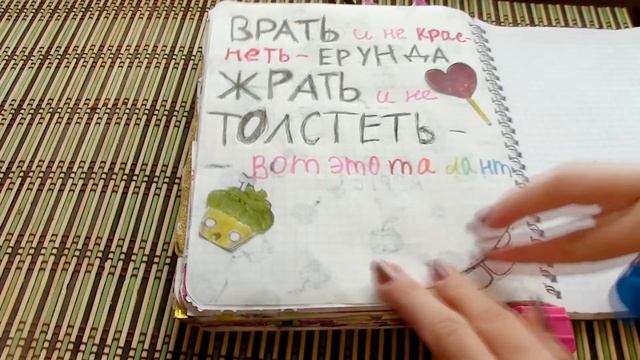 ВРАТЬ и не крас-
неть - ЕРУНДА
ЖРАТЬ и не
ТОЛСТЕТЬ -
- вот это талант